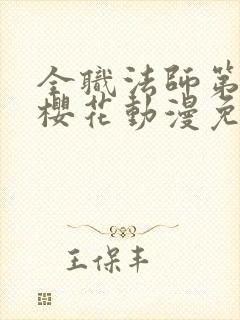 全職法師第
櫻花動漫免
王保丰